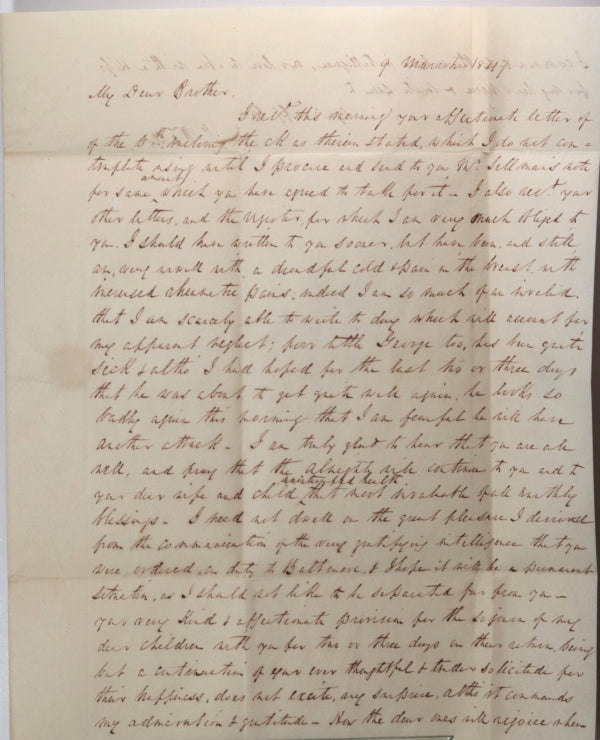 9 March 1847.
My Dear Brother,
I recd. this morning your affectionate letter of
of the 6th, enclosing the ck as therein stated, which I do not con-
template using until I procure and send to you Mr. Sellman's note
for same amount which you have agreed to take for it – I also recd. your
other letters, and the register, for which I am very much obliged to
you. I should have written to you sooner, but have been, and still
am, very unwell with a dreadful cold & pain in the breast, with
increased rheumatic pains; indeed I am so much of an invalid,
that I am scarcely able to write to day which will account for
my apparent neglect; poor little George too, has been quite
sick & altho' I had hoped for the last two or three days
that he was about to get quite well again, he looks so
badly again this morning that I am fearful he will have
another attack – I am truly glad to hear that you are all
well, and pray that the Almighty will continue to you and to
your dear wife and child, uninterrupted health that most invaluable of all earthly
blessings – I need not dwell on the great pleasure I derived
from the communication of the very gratifying intelligence that you
were ordered on duty to Baltimore, & I hope it will be a permanent
situation, as I should not like to be separated far from you –
your very kind & affectionate provision for the sojourn of my
dear children with you for two or three days on their return, being
but a continuation of your ever thoughtful & tender solicitude for
their happiness, does not excite any surprise, altho it commands
my admiration & gratitude – How the dear ones will rejoice when